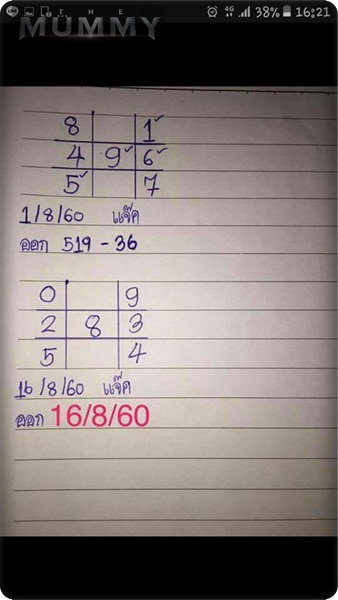 T H E
4G 38% 16:21
MUMMY
8 1✓
4 9✓ 6✓
5✓ 7
1/8/60 แจ๊ค
ออก 519 - 36
0 9
2 8 3
5 4
16/8/60 แจ๊ค
ออก 16/8/60